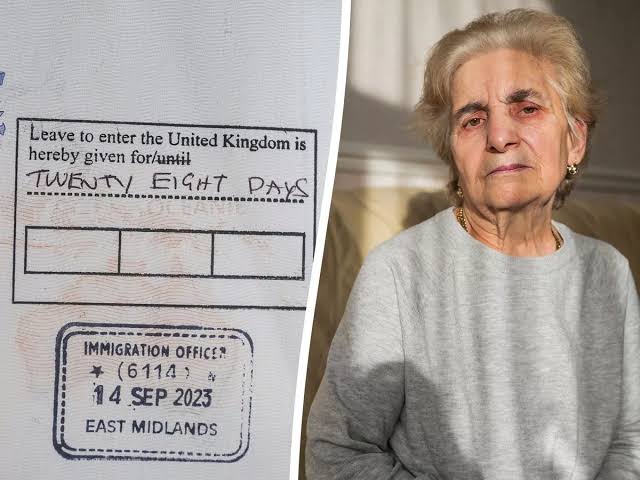 Leave to enter the United Kingdom is
hereby given for/until
TWENTY EIGHT DAYS
IMMIGRATION OFFICER
★ (6114)
14 SEP 2023
EAST MIDLANDS